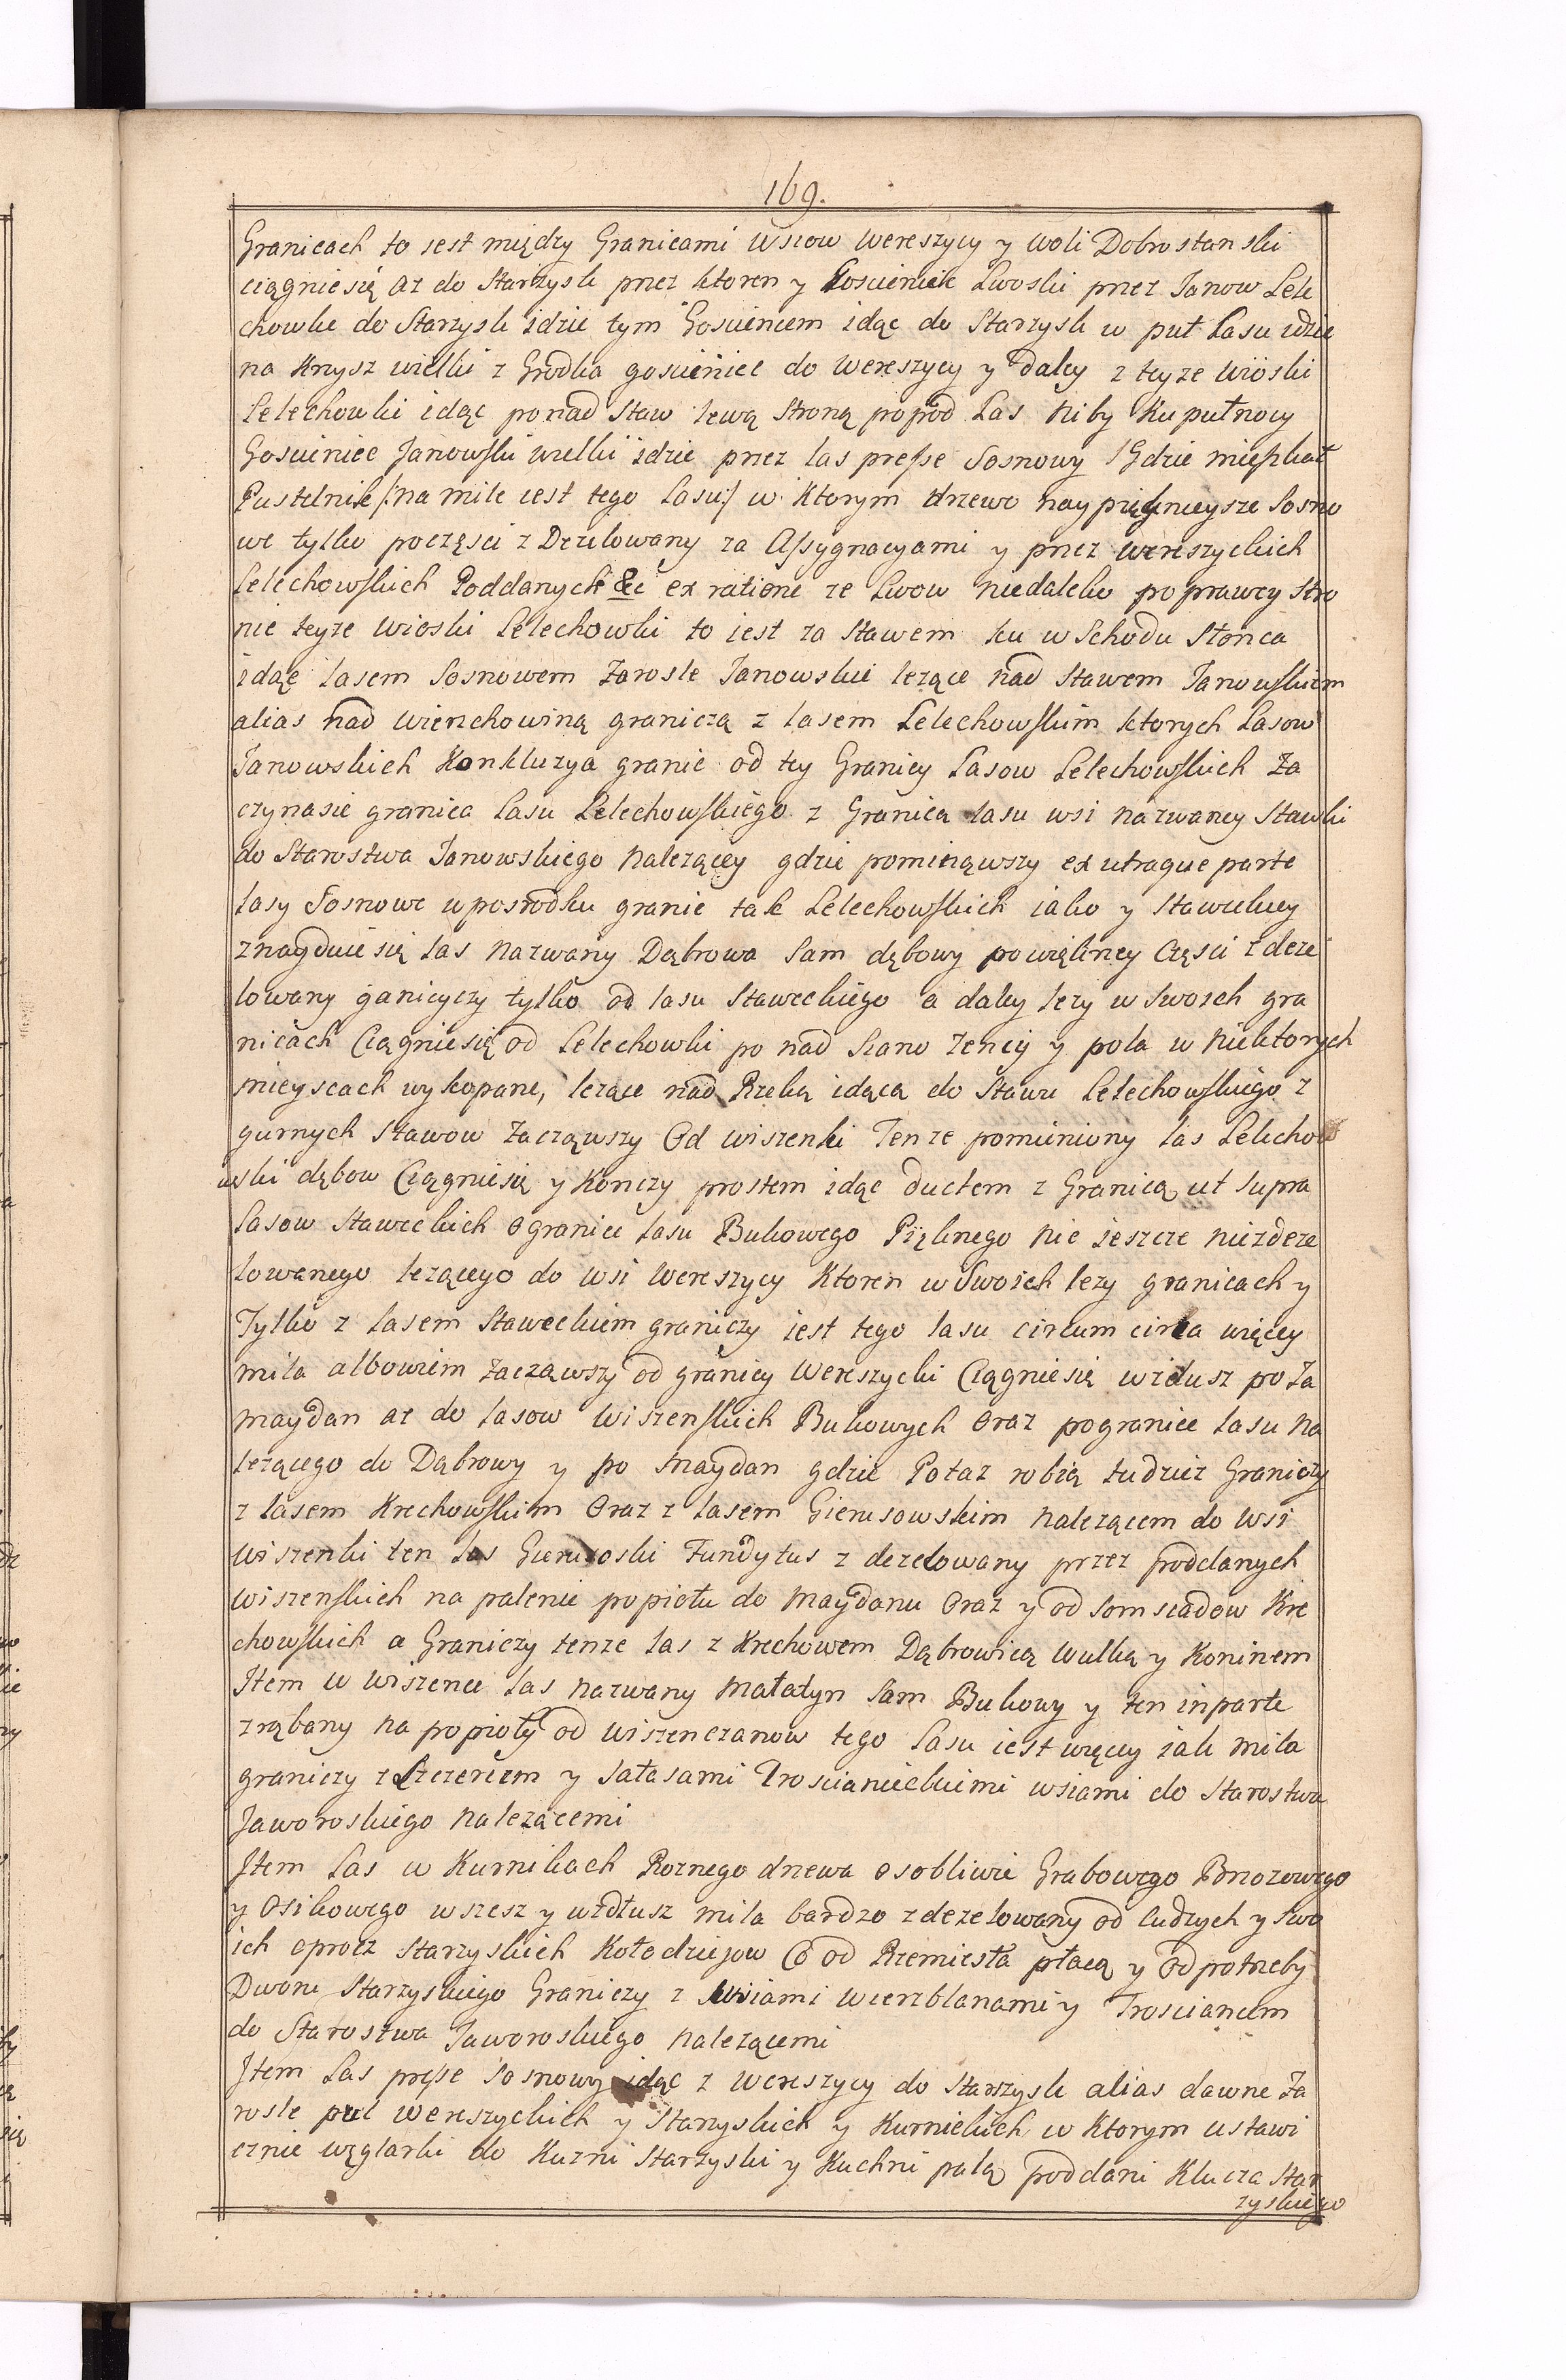 169.
Granicach to iest między Granicami wsiow Wereszycy y woli Dobrostanski
ciągniesię az do Starzysk przez ktoren y Gosciniek Lwoski przez Janow Lele
chowke do Starzysk idzie tym Goscincem idąc do Starzysk w puł Lasu idzie
na Krzysz wielki z Grodka gosciniec do Wereszycy y daley z teyze wioski
Lelechowki idąc ponad Staw lewą stroną popod Las niby ku pułnocy
Gosciniec Janowski wielki idzie przez las presse Sosnowy /Gdzie mięszkał
Pustelnik/: na mile iest tego Lasu:/ w ktorym drzewo naypięknieysze Sosno
we tylko poczęsci zDezelowany za Assygnacyami y przez wereszyckich
Lelechowskich Poddanych &c ex ratione ze Lwow niedaleko po prawey stro
nie teyze wioski Lelechowki to iest za stawem ku wSchodu Słonca
idąc lasem Sosnowem Zarosle Janowskie lezące nad stawem Janowskiem
alias nad wierzchowiną graniczą z lasem Lelechowskim ktorych Lasow
Janowskich Konkluzya granic od tey Granicy Lasow Lelechowskich Za
czynasie granica Lasu Lelechowskiego z Granicą lasu wsi nazwaney Stawki
do Starostwa Janowskiego nalezącey gdzie pominąwszy ex utraque parte
lasy Sosnowe wposrodku granic tak Lelechowskich iako y Stawieckiey
znayduie się las nazwany Dąbrowa Sam dębowy powiękney Częsci zdeze
lowany ganiczy tylko od lasu Staweckiego a daley lezy w swoich gra
nicach Ciągniesię od Lelechowki po nad Siano zencię y pola w niektorych
mieyscach wykopane, lezące nad Rzeką idącą do Stawu Lelechowskiego z
gurnych Stawow Zacząwszy Od wiszenki Tenze pomieniony las Lelicho
wski dębow Ciągniesię y Konczy prostem idąc ductem z Granicą ut supra
Lasow Staweckich o granice lasu Bukowego Pięknego nie ieszcze niezdeze
lowanego lezącego do wsi Wereszycy Ktoren w Swoich lezy granicach y
Tylko z lasem Staweckiem graniczy iest tego lasu circum circa więcey
mila albowiem Zacząwszy od granicy Wereszycki Ciągniesię wzdusz po Za
maydan az do lasow Wiszenskich Bukowych Oraz pogranice lasu na
lezącego do Dąbrowy y po Maydan gdzie Potaz robią tudziez Graniczy
z lasem Krechowskim Oraz z lasem Gierusowskim nalezącem do Wsi
Wiszenki ten Las Gieruzoski Fundytus z dezelowany przez poddanych
Wiszenskich na palenie popiołu do Maydanu Oraz y od somsiadow Kre
chowskich a Graniczy tenze las z Krechowem Dąbrowicą Wulką y Koninem
Item w Wiszence Las nazwany Małatyn Sam Bukowy y ten inparte
zrąbany na popioły od Wiszenczanow tego Lasu iest więcey iak mila
graniczy z Szczerzem y Sałasami Troscianieckiemi wsiami do Starostwa
Jaworoskiego nalezącemi
Item Las w Kurnikach Roznego drzewa osobliwie Grabowego Brzozowego
y Osikowego wszesz y wzdłusz mila bardzo zdezelowany od ludzych y swo
ich oprocz Starzyskich Kołodziejow Co od Rzemiesła płacą y od potrzeby
Dworu Starzyskiego Graniczy z Wsiami Wierzblanami y Troscianem
do Starostwa Jaworoskiego nalezącemi
Item Las presse Sosnowy idąc z Wereszycy do Starzysk alias dawne Za
rosle pul Wereszyckich y Starzyskich y Kurnickich w Ktorym ustawi
cznie węglarki do Kuzni Starzyski y Kuchni palą poddani Klucza Star
zyskiego